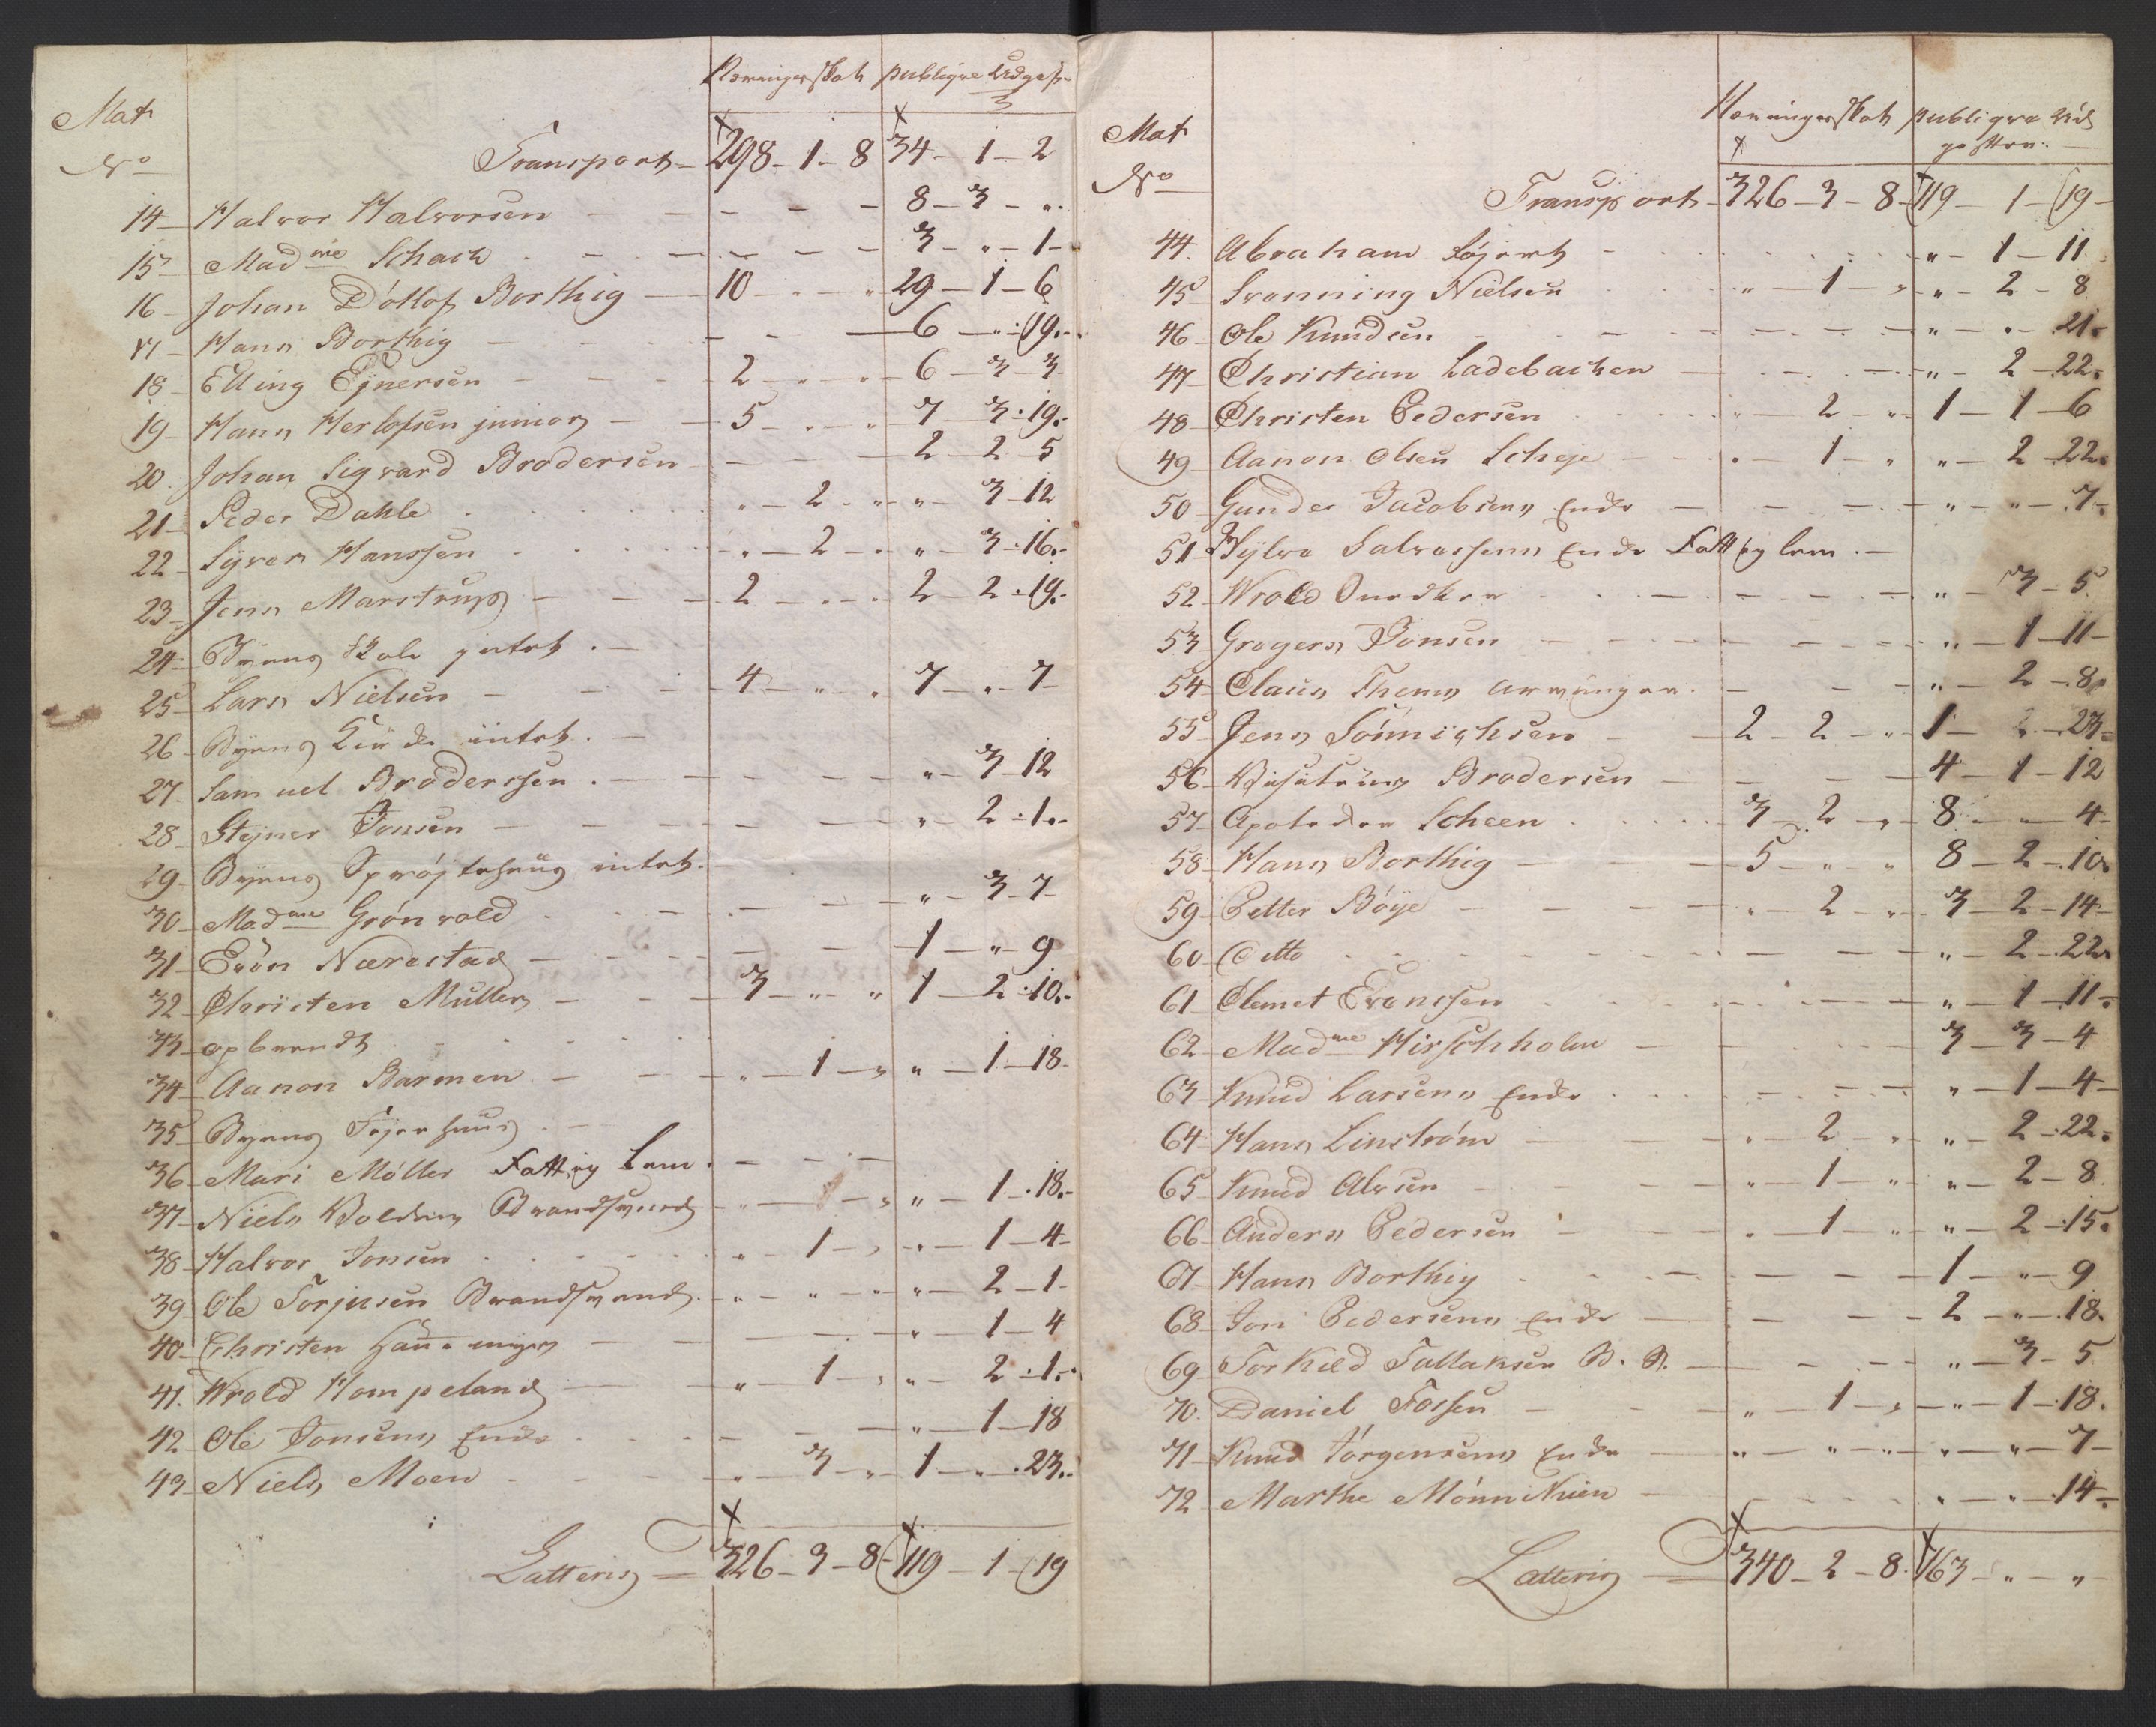 Næringsskat publiqve Udgift
Mat
No
Transport 298 - 1 - 8 34 - 1 - 2
14 Halvor Halvorsen 8 - 3 - "
15 Madme Schach 3 - " - 1
16 Johan Dótlof Borthig 10 - " - " 29 - 1 - 6
17 Hans Borthig 6 - " - 19
18 Elling Ejnersen 2 - " - " 6 - 3 - 3
19 Hans Herlofsen junior 5 - " - " 7 - 3 - 19
20 Johan Sigvard Brodersen 2 - 2 - 5
21 Peder Dahle " - 2 - " " - 3 - 12
22 Syver Hanssen " - 2 - " " - 3 - 16
23 Jens Marstrup 2 - " - " 2 - 2 - 19
24 Byens Skole intet
25 Lars Nielsen 4 - " - " 7 - " - 7
26 Byens intet
27 Samuel Broderssen " - 3 - 12
28 Stejner Jonsen " - 2 - 1
29 Byens Sprøjtehuus intet
30 Madme Grónvold " - 3 - 7
31 Evón Nærestad 1 - " - 9
32 Christen Muller 3 - " - " 1 - 2 - 10
33 opbrendt
34 Aanon Barmen " - 1 - " " - 1 - 18
35 Byens Fejerhuus
36 Mari Móller Fattig Lem
37 Niels Brandsvend " - 1 - 18
38 Halvor Jonsen " - 1 - " " - 1 - 4
39 Ole Torjusen Brandsvend " - " - " " - 2 - 1
40 Christen " - 1 - 4
41 Wrold Hompeland " - 1 - " " - 2 - 1
42 Ole Jonsens Enke " - 1 - 18
43 Niels Moen " - 3 - " 1 - " - 23
Latteris 326 - 3 - 8 119 - 1 - 19
Næringsskat publiqve Ud
gifter
Mat
No
Transport 326 - 3 - 8 119 - 1 - 19
44 Abraham " - 1 - 11
45 Svenning Nielsen " - 1 - " " - 2 - 8
46 Ole Knudsen " - " - 21
47 Christian Ladebachen " - 2 - 22
48 Christen Pedersen " - 2 - " 1 - 1 - 6
49 Aanon Olsen Scheje " - 1 - " " - 2 - 22
50 Gunder Jacobsens Enke " - " - 7
51 Salvessens Enke Fattig lem
52 Wrold " - 3 - 5
53 Gregers Jonsen " - 1 - 11
54 Claus Thems arvinger " - 2 - 8
55 Jens Sónnichsen 2 - 2 - " 1 - 2 - 23
56 Brodersen 4 - 1 - 12
57 Apoteker Scheen 3 - 2 - " 8 - " - 4
58 Hans Borthig 5 - " - " 8 - 2 - 10
59 Petter Bóye " - 2 - " 3 - 2 - 14
60 Ditto " - 2 - 22
61 Clemet Evenssen " - 1 - 11
62 Madme Hirschholm 3 - 3 - 4
63 Knud Larsens Enke " - 1 - 4
64 Hans Linstróm " - 2 - " " - 2 - 22
65 Knud Alvsen " - 1 - " " - 2 - 8
66 Anders Pedersen " - 1 - " " - 2 - 15
67 Hans Borthig 1 - " - 9
68 Jon Pedersens Enke 2 - " - 18
69 Torkild Tallaksen B. S. " - 3 - 5
70 Daniel Fossen " - 1 - " " - 1 - 18
71 Knud Jórgensens Enke " - " - " " - " - 7
72 Marthe " - " - 14
Latteris 340 - 2 - 8 163 - " - "